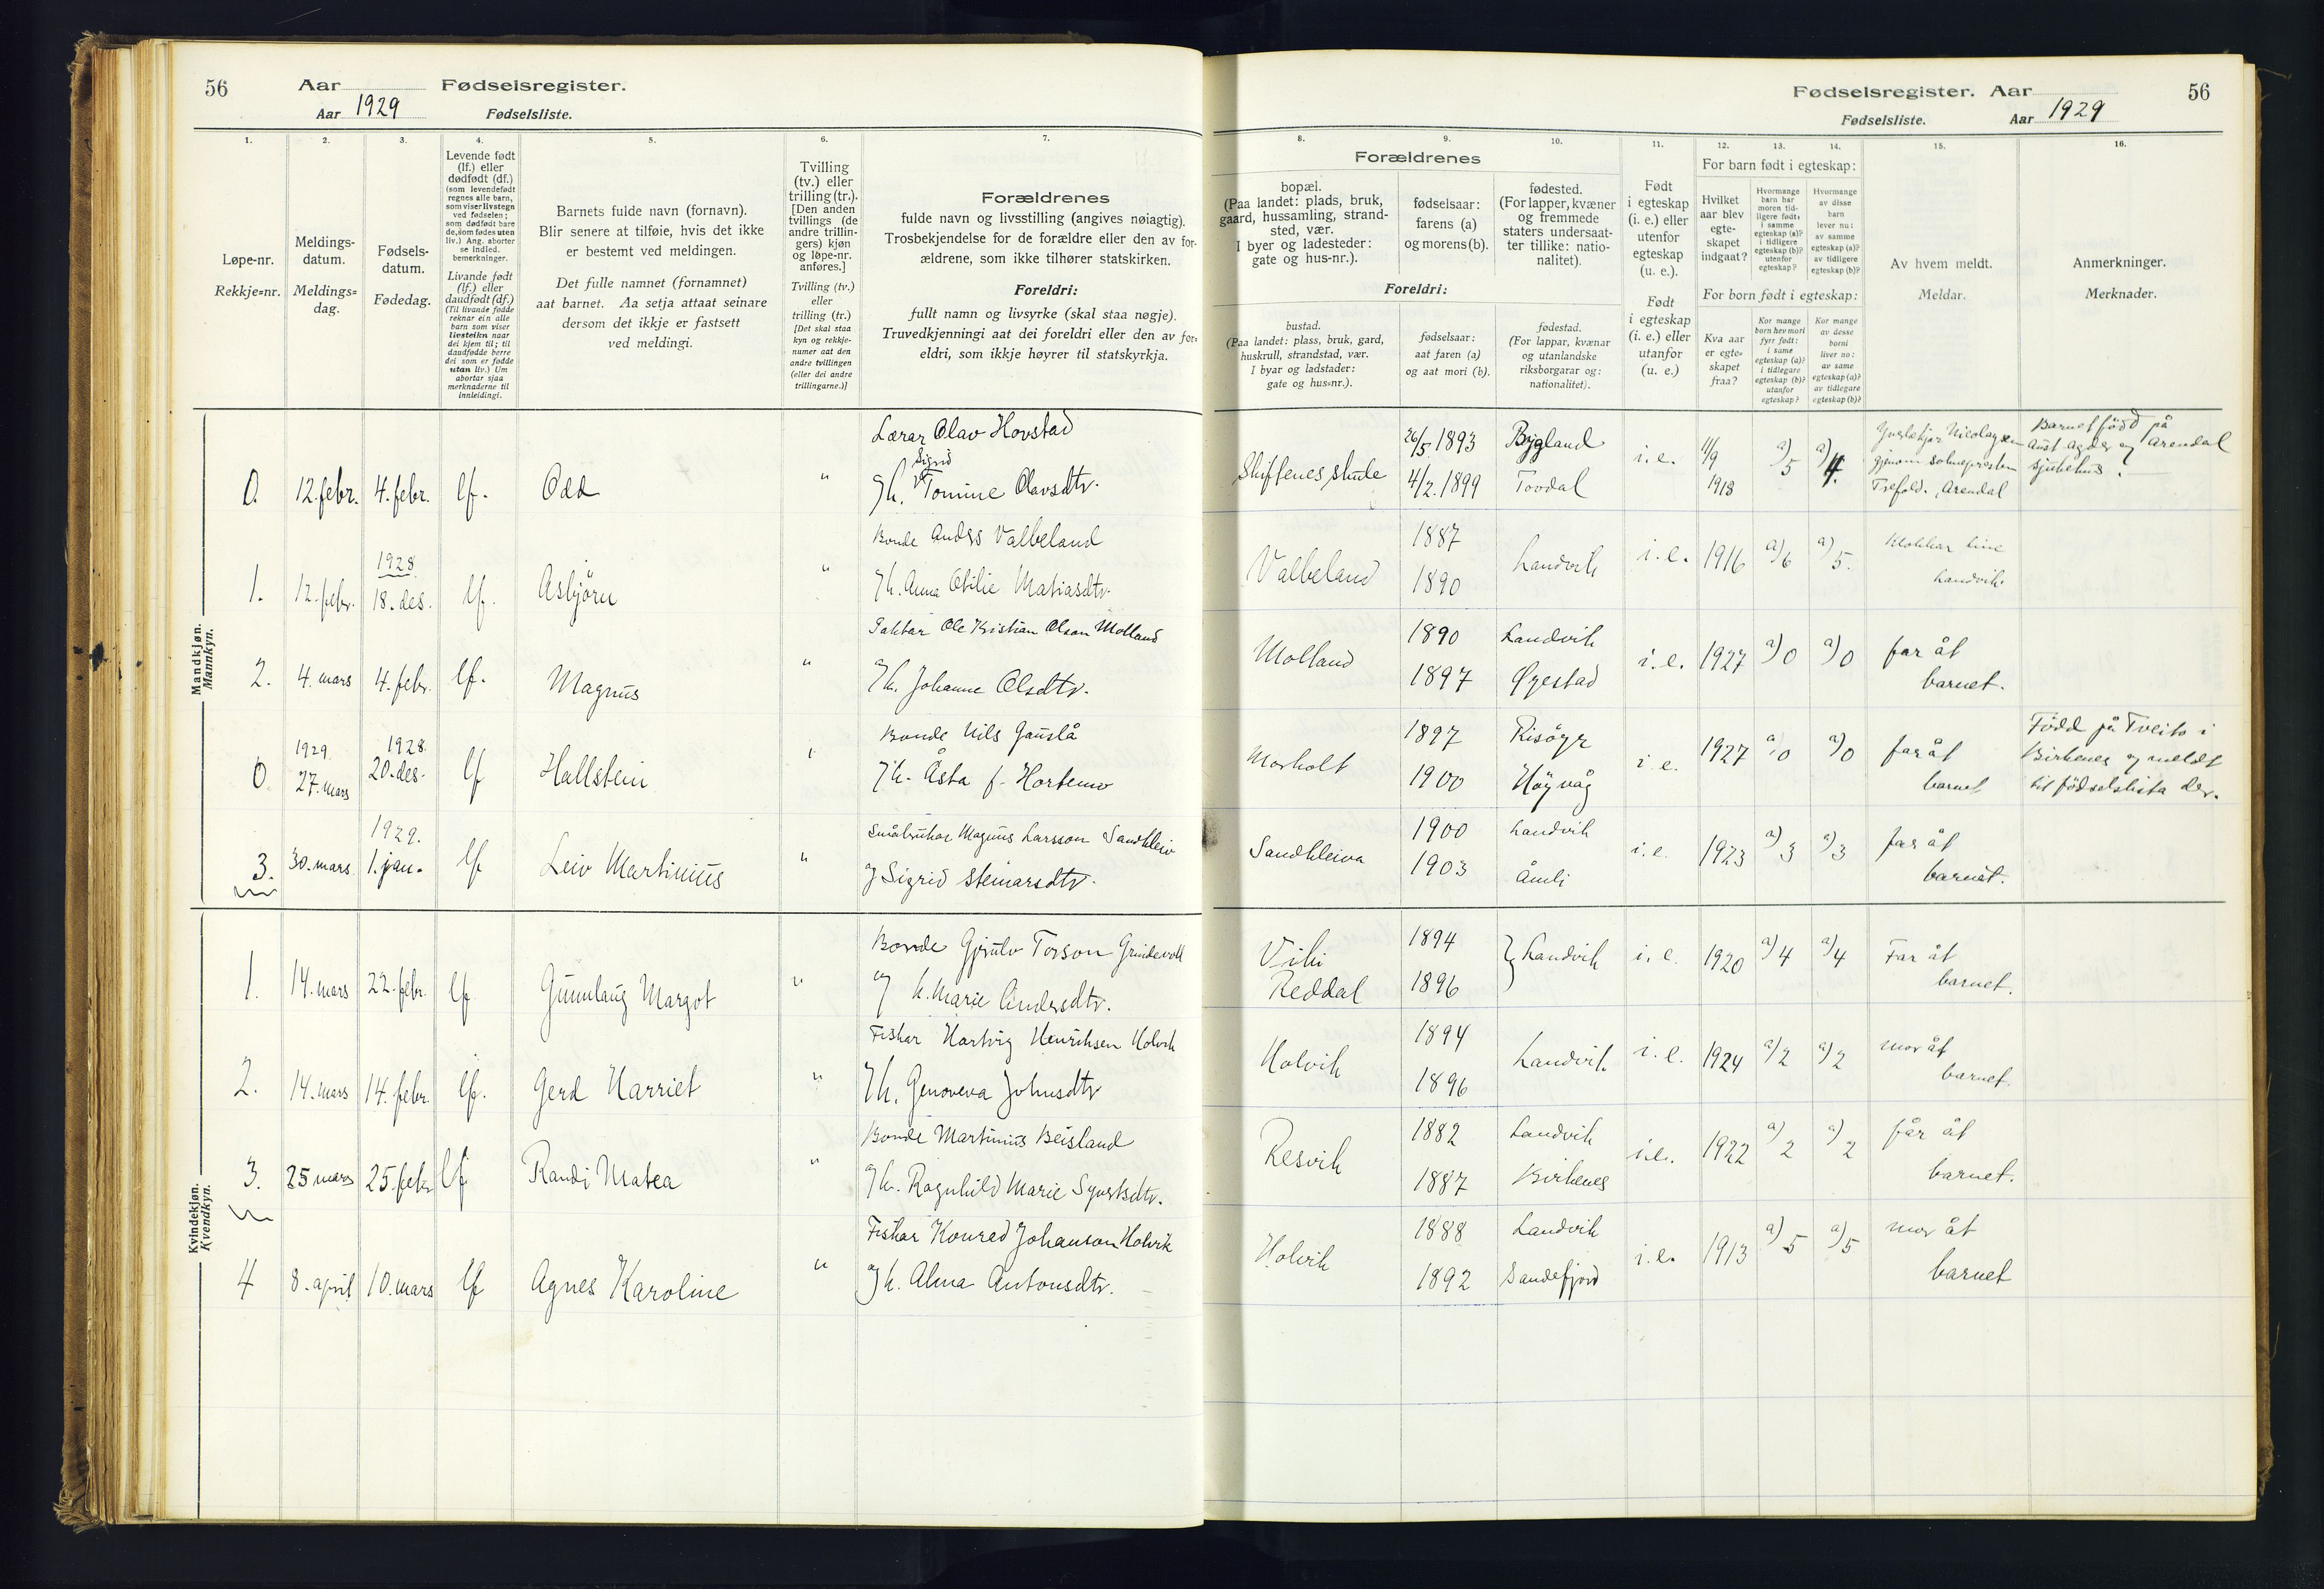 56 Aar Fødselsregister.
Aar 1929 Fødselsliste.
1. 2. 3. 4. 5. 6. 7.
Løpe-nr.
Rekkje=nr.
Meldings-
datum.
Meldings=
dag.
Fødsels-
datum.
Fødedag.
Levende født
(lf.) eller
dødfødt (df.)
(som levendefødt
regnes alle barn,
som viser livstegn
ved fødselen;
som dødfødt bare
de, som fødes uten
liv.) Ang. aborter
se indled.
bemerkninger.
Livande født
(lf.) eller
daudfødt (df.)
(Til livande fødde
reknar ein alle
barn som viser
livsteikn naar
dei kjem til; til
daudfødde berre
dei som er fødde
utan liv.) Um
abortar sjaa
merknaderne til
innleidingi.
Barnets fulde navn (fornavn).
Blir senere at tilføie, hvis det ikke
er bestemt ved meldingen.
Det fulle namnet (fornamnet)
aat barnet. Aa setja attaat seinare
dersom det ikkje er fastsett
ved meldingi.
Tvilling
(tv.) eller
trilling (tr.).
[Den anden
tvillings (de
andre trillin-
gers) kjøn
og løpe-nr.
anføres.]
Tvilling (tv.)
eller
trilling (tr.)
[Det skal staa
kyn og rekkje-
numer aat den
andre tvillingen
(eller dei andre
trillingarne.)]
Forældrenes
fulde navn og livsstilling (angives nøiagtig).
Trosbekjendelse for de forældre eller den av for-
ældrene, som ikke tilhører statskirken.
Foreldri:
fullt namn og livsyrke (skal staa nøgje).
Truvedkjenningi aat dei foreldri eller den av for-
eldri, som ikkje høyrer til statskyrkja.
Mandkjøn.
Mannkyn.
Lærar Olav Hovstad
Sigrid
0. 12. febr. 4. febr. lf. Odd " og h. Tomine Olavsdtr.
Bonde Anders Valbeland
1928
1. 12. febr. 18. des. lf. Asbjörn " og h. Anna Otilie Matiasdtr.
Ole Kristian Olson Molland
2. 4. mars 4. febr. lf. Magnus " og h. Johanne Olsdtr.
Bonde Nils Gauslå
1929 1928
0. 27. mars 20. des. lf Hallstein " og h. Åsta f. Hortemo
1929. Småbrukar Magnus Larsson Sandkleiv
3. 30. mars 1. jan. lf Leiv Martinius " og Sigrid Steinarsdtr.
Kvindekjøn.
Kvendkyn.
Bonde Gjerulv Torson Grindevoll
1. 14. mars 22. febr. lf Gunnlaug Margot " og h. Marie Andersdtr.
Fiskar Hartvig Henriksen Holvik
2. 14. mars 14. febr. lf. Gerd Harriet " og h. Genoveva Johnsdtr
Bonde Martinius Beisland
3. 25 mars 25. febr lf Randi Matea " og h. Ragnhild Marie
Fiskar Konrad Johanson Holvik
4 8. april 10. mars lf Agnes Karoline " og h. Alma Antonsdtr.
Fødselsregister. Aar 56
Fødselsliste. Aar 1929
8. 9. 10. 11. 12. 13. 14. 15. 16.
Forældrenes
bopæl.
(Paa landet: plads, bruk,
gaard, hussamling, strand-
sted, vær.
I byer og ladesteder:
gate og hus-nr.).
fødselsaar:
farens (a)
og morens (b).
fødested.
(For lapper, kvæner
og fremmede
staters undersaat-
ter tillike: natio-
nalitet).
Foreldri:
bustad.
(Paa landet: plass, bruk, gard,
huskrull, strandstad, vær.
I byar og ladstader:
gate og hus=nr.).
fødselsaar:
aat faren (a)
og aat mori (b).
fødestad.
(For lappar, kvænar
og utanlandske
riksborgarar og:
nationalitet).
Født
i egteskap
(i. e.) eller
utenfor
egteskap
(u. e.).
Født
i egteskap
(i. e.) eller
utanfor
(u. e.)
For barn født i egteskap:
Hvilket
aar blev
egte-
skapet
indgaat?
Hvormange
barn har
moren tid-
ligere født:
i samme
egteskap (a)?
i tidligere
egteskap (b)?
utenfor
egteskap?
Hvormange
av disse
barn
lever nu:
av samme
egteskap (a)?
av tidligere
egteskap (b)?
For born født i egteskap:
Kva aar
er egte=
skapet
fraa?
Kor mange
born hev mori
fyrr født:
i same
egteskap (a)?
i tidlegare
egteskap (b)?
utanfor
egteskap?
Kor mange
av desse
borni
liver no:
av same
egteskap (a)?
av tidlegare
egteskap (b)?
Av hvem meldt.
Meldar.
Anmerkninger.
Merknader.
26/5 1893 Bygland Barnet född på
Skiftenes skule i. e. 11/9 a) 5 a) 4. gjenom soknepresten Aust Agder og Arendal
4/2. 1899 Tovdal 1918 Trefold. , Arendal sjukehus.
1887
Valbeland Landvik i. e. 1916 a) 6 a) 5. Klokkar
1890 Landvik
1890 Landvik far åt
Molland i. e. 1927 a) 0 a) 0
1897 Øyestad barnet.
1897 Risöyr Född på Tveito i
Morholt i. e. 1927 a) 0 a) 0 far åt Birkenes og meldt
1900 Höyvåg barnet til födselslista der.
1900 Landvik far åt
Sandkleiva i. e. 1923 a) 3 a) 3
1903 Åmli barnet.
Viki 1894 Landvik i. e. 1920 a) 4 a) 4 Far åt
Reddal 1896 barnet.
1894 mor åt
Holvik Landvik i. e. 1924 a) 2 a) 2
1896 barnet.
1882 Landvik får åt
Resvik i. e. 1922 a) 2 a) 2
1887 Birkenes barnet.
1888 Landvik mor åt
Holvik i. e. 1913 a) 5 a) 5
1892 Sandefjord barnet